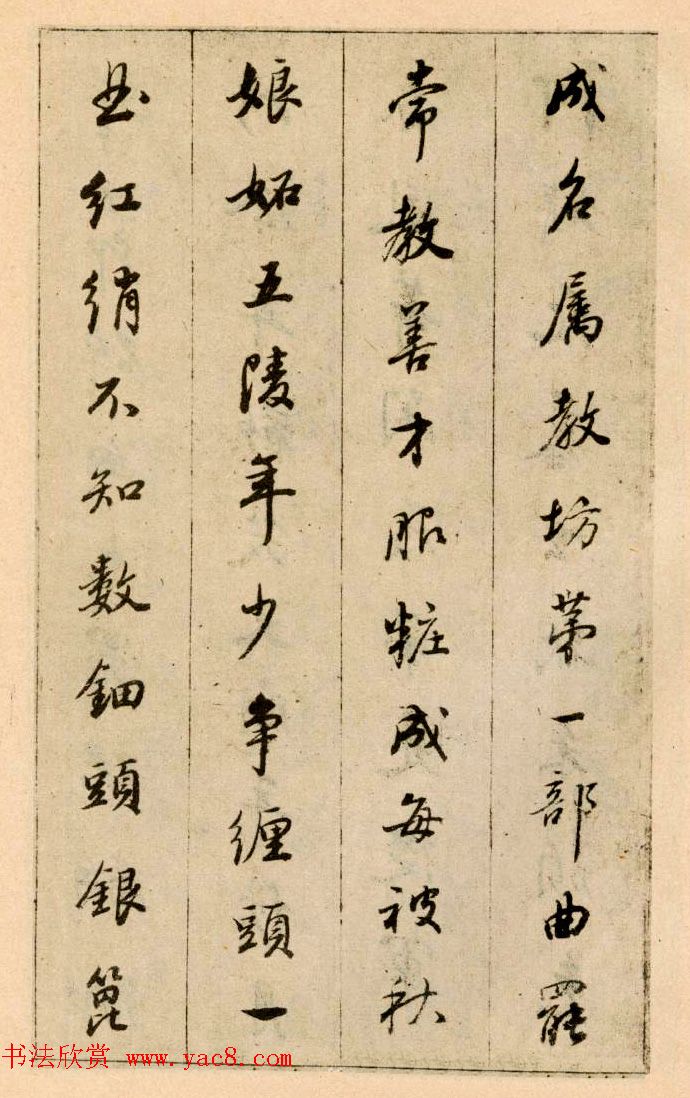 成名属教坊苐一部曲罷
常教善才服粧成每被秋
娘妬五陵年少争纏頭一
曲紅綃不知數鈿頭銀箆
书法欣赏 www.yac8.com